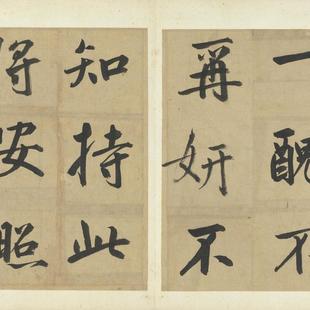 一醜不
再妍不
知持此
将安照